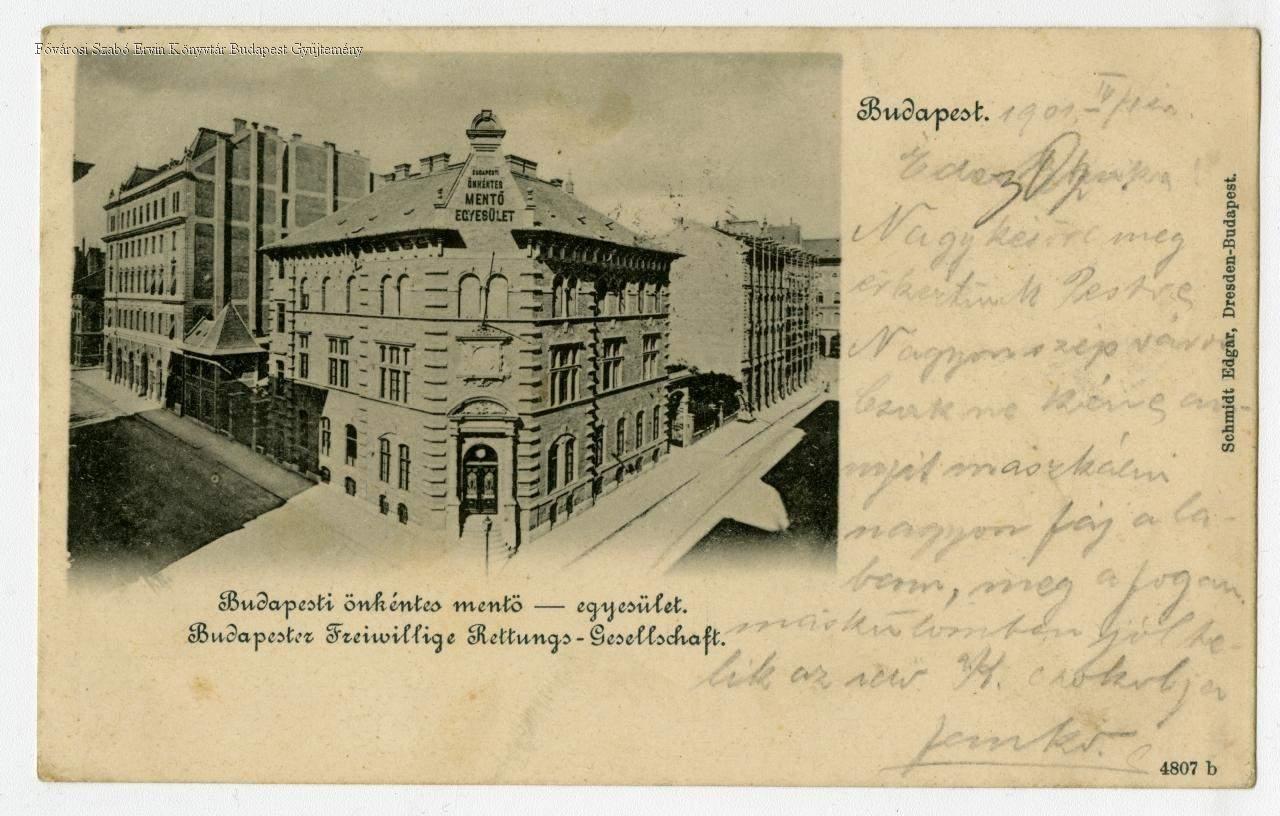 Fővárosi Szabó Ervin Könyvtár Budapest Gyűjtemény
BUDAPESTI
ÖNKÉNTES
MENTŐ
EGYESÜLET
Budapest. 1901
Nagy késő re meg
érkeztünk Pestre
Nagyon szép város
Csak ne kéne an-
nyit maszkálni
nagyon fáj a lá-
bam, meg a fogam.
máskülömben jól te-
lik az idő. csókolja
Jenikó.
Budapesti önkéntes mentö — egyesület.
Budapester Freiwillige Rettungs-Gesellschaft.
Schmidt Edgar, Dresden-Budapest.
4807 b